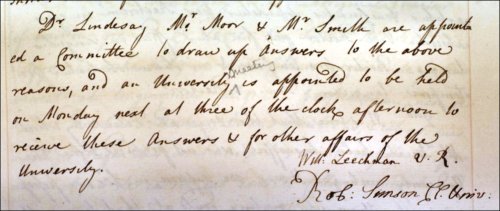 Dr. Lindesay Mr. Moor & Mr. Smith are appoint
ed a Committee to draw up Answers to the above
reasons, and an University meeting is appointed to be held
on Monday next at three of the clock afternoon to
receive these Answers & for other affairs of the
University.
Will: Leechman V. R.
Rob: Simson Cl. Univ.